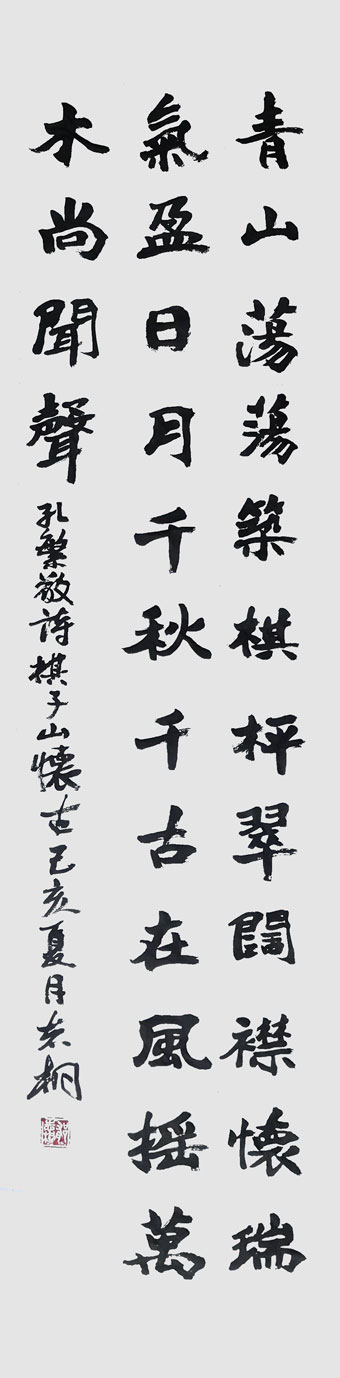 青山蕩蕩築棋枰翠闊襟懷瑞
氣盈日月千秋千古在風摇萬
木尚聞聲
孔繁敬詩棋子山懷古己亥夏月老桐